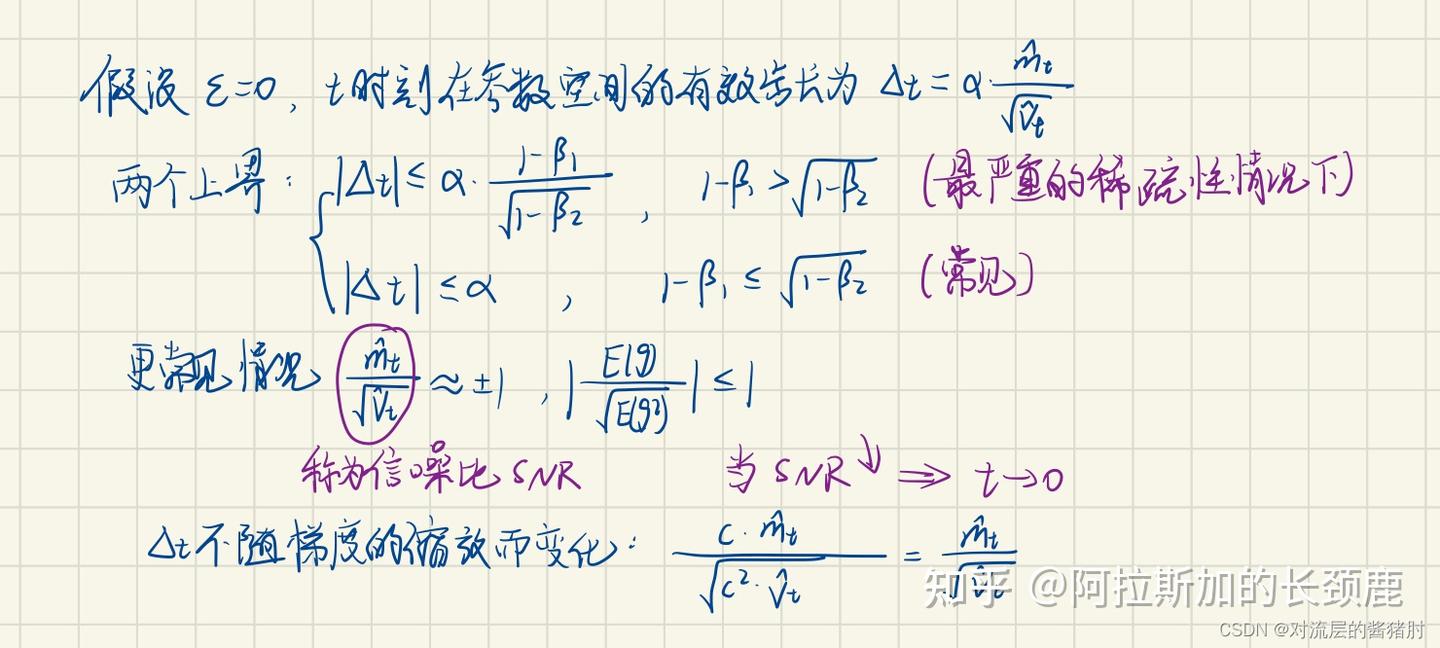 假设 ε=0, t时刻在参数空间的有效步长为 Δt = α·m̂t/√v̂t
两个上界: { |Δt| ≤ α·(1-β1)/√(1-β2), 1-β1 > √(1-β2) (最严重的稀疏性情况下)
|Δt| ≤ α, 1-β1 ≤ √(1-β2) (常见)
更常见情况 m̂t/√v̂t ≈ ±1, |E(g)/√E(g²)| ≤ 1
称为信噪比 SNR 当 SNR↓ ⟹ t→0
Δt不随梯度的缩放而变化: c·m̂t/√(c²·v̂t) = m̂t/√v̂t
知乎 @阿拉斯加的长颈鹿
CSDN @对流层的酱猪肘